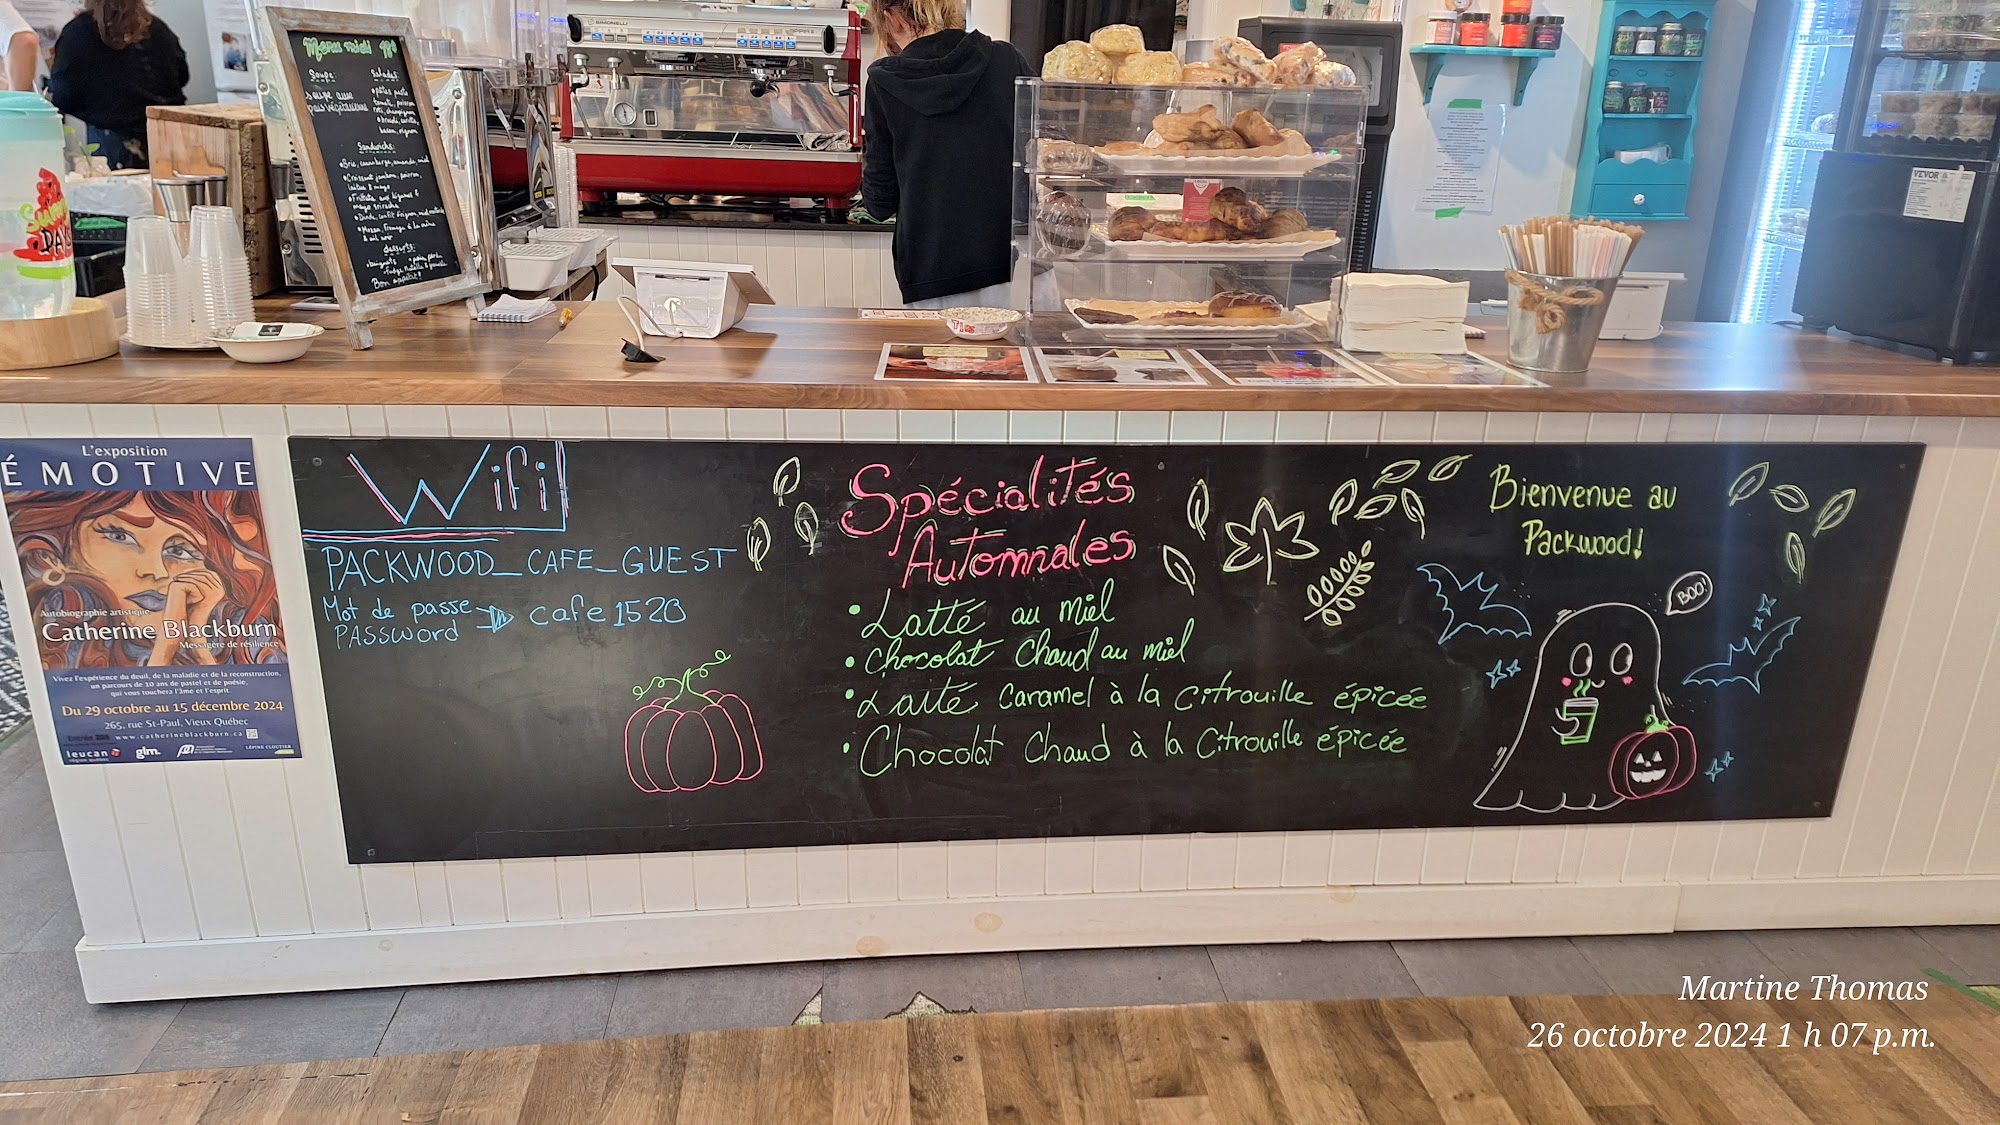 Menu midi
Soupe:
Salades:
Sandwichs:
Desserts:
Bon appétit!
SIMONELLI
VEVOR
L'exposition
ÉMOTIVE
Autobiographie artistique
Catherine Blackburn
Messagère de résilience
Vivez l'expérience du deuil, de la maladie et de la reconstruction,
un parcours de 10 ans de pastel et de poésie,
qui vous touchera l'âme et l'esprit.
Du 29 octobre au 15 décembre 2024
265, rue St-Paul, Vieux Québec
www.catherineblackburn.ca
leucan
glm.
LÉPINE CLOUTIER
Wifi
PACKWOOD_CAFE_GUEST
Mot de passe
PASSWord
cafe1520
Spécialités
Automnales
• Latté au miel
• Chocolat Chaud au miel
• Latté Caramel à la Citrouille épicée
• Chocolat Chaud à la Citrouille épicée
Bienvenue au
Packwood!
BOO!
Martine Thomas
26 octobre 2024 1 h 07 p.m.